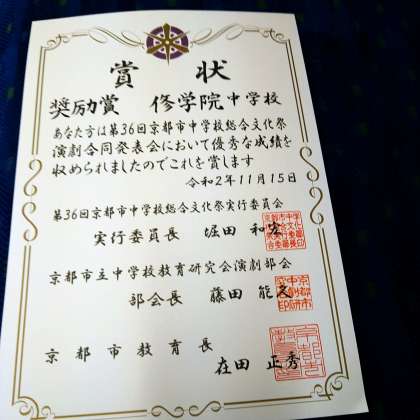 賞状
奨励賞 修学院中学校
あなた方は第36回京都市中学校総合文化祭
演劇合同発表会において優秀な成績を
収められましたのでこれを賞します
令和2年11月15日
第36回京都市中学校総合文化祭実行委員会
実行委員長 堀田 和宏
京都市立中学校教育研究会演劇部会
部会長 藤田 能久
京都市教育長
在田 正秀